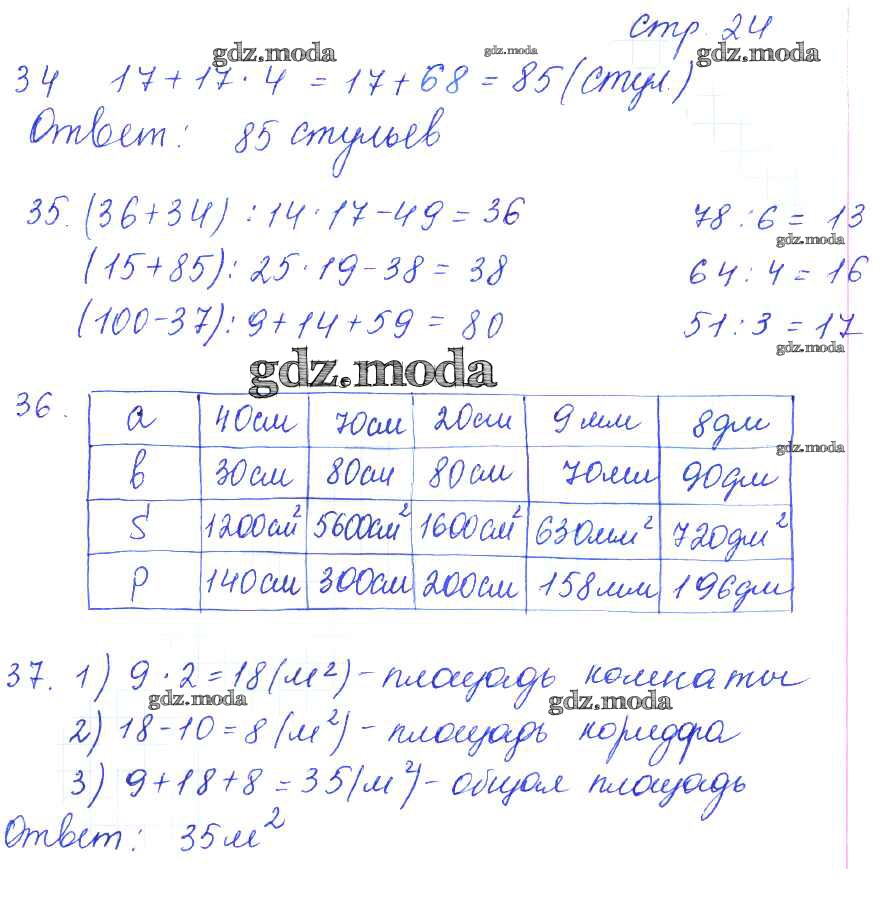 стр. 24
gdz.moda gdz.moda gdz.moda
34 17 + 17 · 4 = 17 + 68 = 85 (стул.)
Ответ: 85 стульев
35. (36+34) : 14 · 17 - 49 = 36 78 : 6 = 13
gdz.moda
(15+85) : 25 · 19 - 38 = 38 64 : 4 = 16
(100-37) : 9 + 14 + 59 = 80 51 : 3 = 17
gdz.moda
gdz.moda
36. a 40см 70см 20см 9мм 8дм
gdz.moda
b 30см 80см 80см 70мм 90дм
S 1200см² 5600см² 1600см² 630мм² 720дм²
P 140см 300см 200см 158мм 196дм
37. 1) 9 · 2 = 18 (м²) - площадь комнаты
gdz.moda gdz.moda
2) 18 - 10 = 8 (м²) - площадь коридора
3) 9 + 18 + 8 = 35 (м²) - общая площадь
Ответ: 35 м²